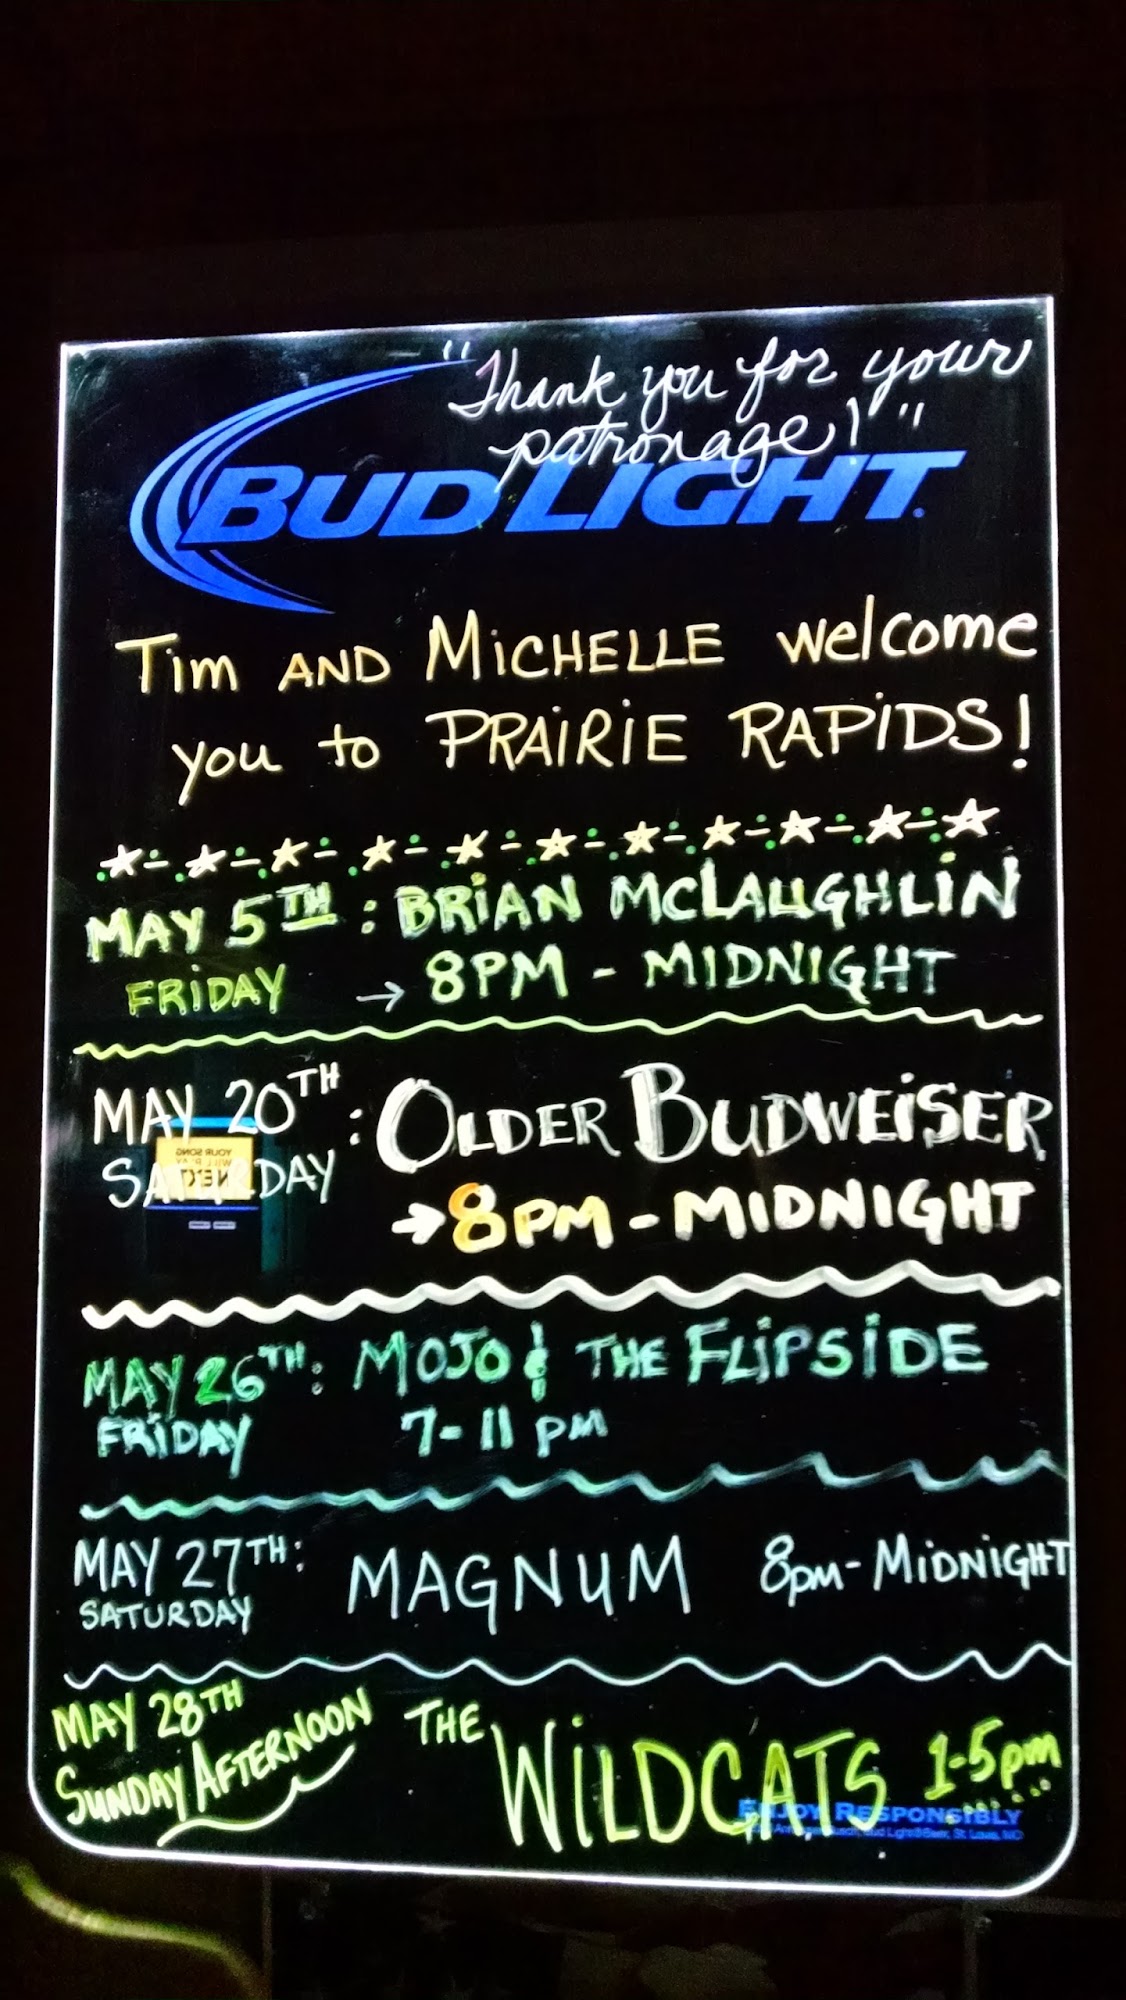 "Thank you for your
patronage!"
BUD LIGHT.
Tim AND MiCHELLE welcome
you to PRAiRiE RAPiDS!
MAY 5TH : BRiAN MCLAUGHLiN
FRiDAY → 8PM - MIDNIGHT
MAY 20TH : OLDER BUDWEiSER
SATURDAY → 8PM - MIDNIGHT
YOUR SONG
WILL PLAY
NEXT
MAY 26TH: MOJO & THE FLiPSiDE
FRiDAY 7-11 pm
MAY 27TH: MAGNUM 8pm-MiDNiGHT
SATURDAY
MAY 28TH THE WiLDCATS 1-5pm
SUNDAY AFTERNOON
ENJOY RESPONSIBLY
Bud Light® Beer, St. Louis, MO